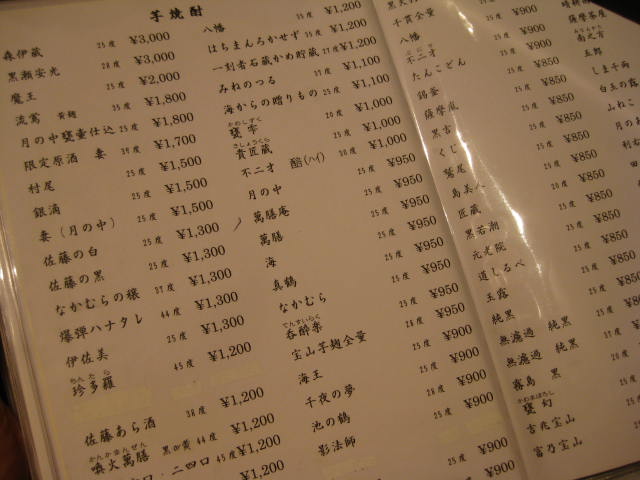 芋焼酎
森伊蔵 25度 ¥3,000
黒瀬安光 28度 ¥3,000
魔王 25度 ¥2,000
流鶯 黄麹 35度 ¥1,800
月の中甕壷仕込 25度 ¥1,800
限定原酒 妻 39度 ¥1,700
村尾 25度 ¥1,500
銀滴 25度 ¥1,500
妻(月の中) 25度 ¥1,500
佐藤の白 25度 ¥1,300
佐藤の黒 25度 ¥1,300
なかむらの穣 37度 ¥1,300
爆弾ハナタレ 44度 ¥1,300
伊佐美 25度 ¥1,300
ちんたら
珍多羅 45度 ¥1,200
佐藤あら酒 38度 ¥1,200
かんかまんぜん
喚火萬膳 黒or黄 44度 ¥1,200
二四口 45度 ¥1,200
八幡 35度 ¥1,200
はちまんろかせず 35度 ¥1,200
一刻者石蔵かめ貯蔵 27度 ¥1,200
みねのつる 37度 ¥1,100
海からの贈りもの 25度 ¥1,100
かめしずく
甕雫 20度 ¥1,000
きしょうくら
貴匠蔵 25度 ¥1,000
不二才 醅(ハイ) 30度 ¥1,000
月の中 25度 ¥950
萬膳庵 25度 ¥950
萬膳 25度 ¥950
海 25度 ¥950
真鶴 25度 ¥950
なかむら 25度 ¥950
でんすいらく
呑酔楽 26度 ¥950
宝山芋麹全量 28度 ¥900
海王 25度 ¥900
千夜の夢 28度 ¥900
池の鶴 25度 ¥900
影法師 25度 ¥900
黒大
千貫全量 ¥900
八幡 25度 ¥900
不二才 25度 ¥900
たんこどん 25度 ¥900
錫釜 25度 ¥850
薩摩嵐 25度 ¥850
黒古 25度 ¥850
くじら 25度 ¥850
鷲尾 25度 ¥850
島美人 25度 ¥850
匠蔵 25度 ¥850
黒若潮 25度 ¥850
元光院 25度 ¥850
道しるべ 25度 ¥850
玉露 25度
純黒 25度
無濾過 純黒
無濾過 純黒
霧島 黒
かめまぼろし
甕幻
吉兆宝山
富乃宝山
晴耕
薩摩茶屋
南之方
五郎
しま千両
白玉の露
山ねこ
月のあ
利右